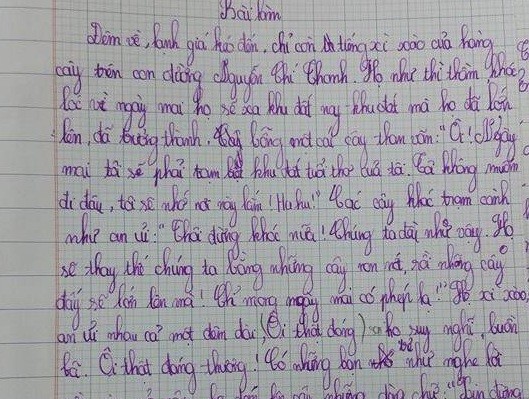 Bài làm
Đêm về, lạnh giá kéo đến, chỉ còn tiếng xì xào của hàng
cây trên con đường Nguyễn Chí Thanh. Họ như thì thầm, khóc
lóc về ngày mai họ sẽ xa khu đất này - khu đất mà họ đã lớn
lên, đã trưởng thành. Bỗng một cái cây than vãn: "Ôi! Ngày
mai tôi sẽ phải tạm biệt khu đất tuổi thơ của tôi. Tôi không muốn
đi đâu, tôi sẽ nhớ nơi này lắm! Hu hu!" Các cây khác trạm cành
như an ủi: "Thôi đừng khóc nữa! Chúng ta đãi như vậy. Họ
sẽ thay thế chúng ta bằng những cây non nớt, rồi những cây
đấy sẽ lớn lên mà! Chỉ mong ngày mai có phép lạ." Họ xì xào
an ủi nhau cả một đêm dài, (Ôi thật đáng) họ suy nghĩ, buồn
bã. Ôi thật đáng thương! Có những bạn bé như nghe lời
những dòng chữ: "Xin đừng